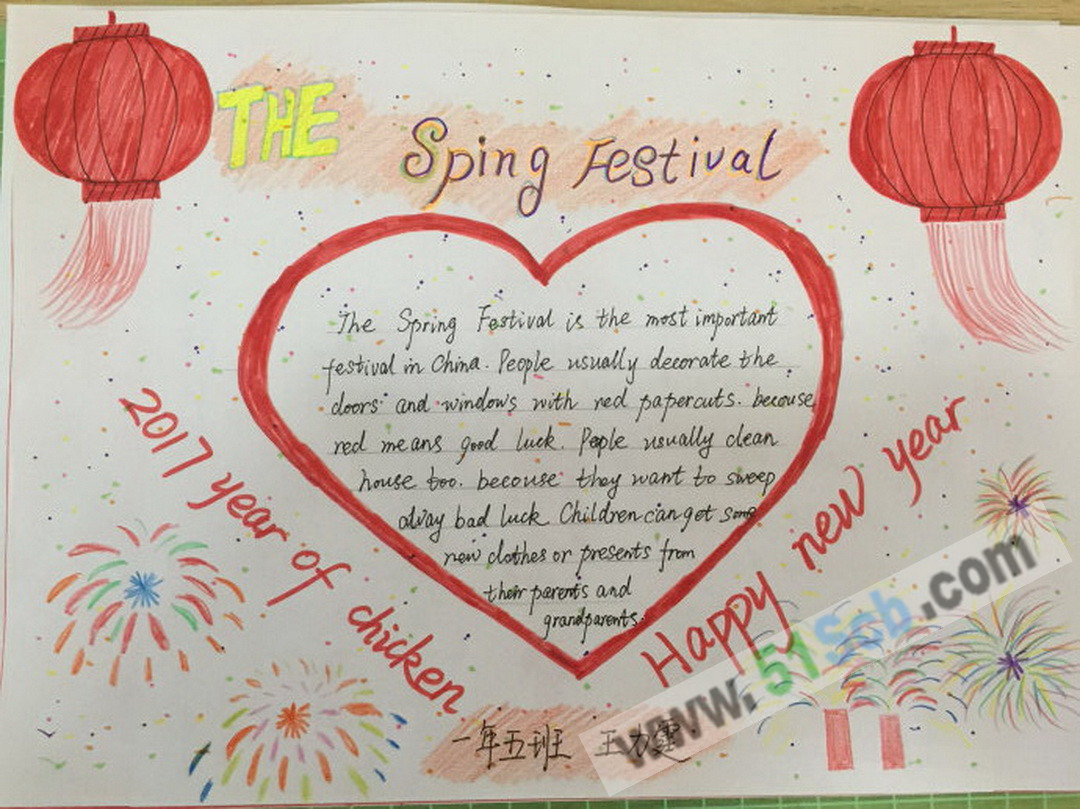 THE Sping Festival
The Spring Festival is the most important
festival in China. People usually decorate the
doors and windows with red papercuts. becouse
red means good luck. People usually clean
house too. becouse they want to sweep
alvay bad luck Children can get some
new clothes or presents from
their parents and
grandparents.
2017 year of chicken
Happy new year
www.51Scb.com
一年五班 王力霆